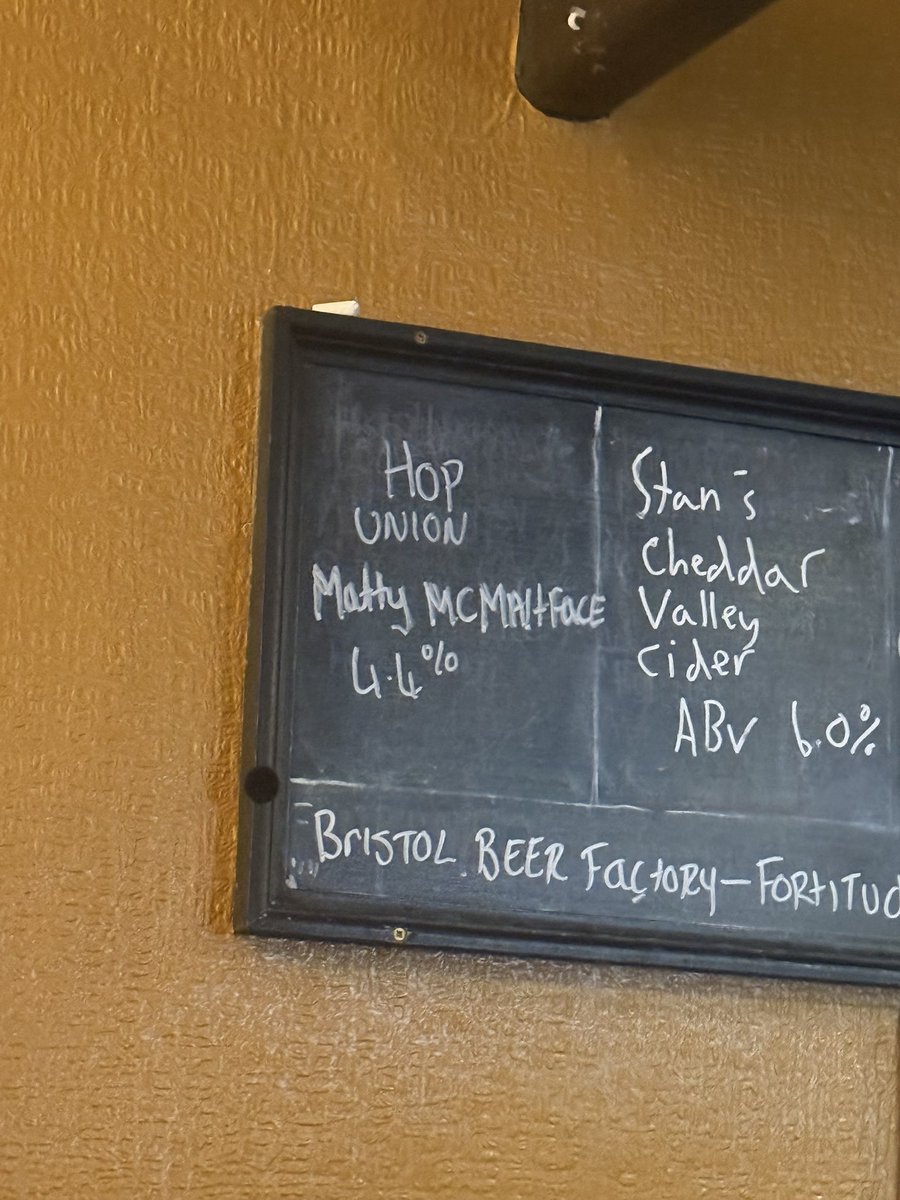 HOP
UNION
Matty MCMAltFACE
4.4%
Stan's
Cheddar
Valley
Cider
ABV 6.0%
BRISTOL BEER FACTORY - FORTITUD